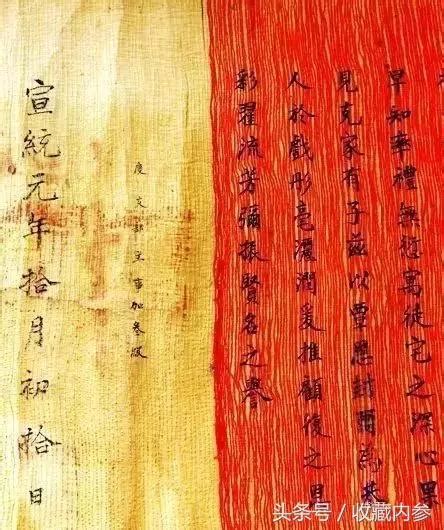 早知率禮無愆寓徙宅之深心果
見克家有子茲以覃恩封爾為恭
人於戲彤毫灑潤爰推顧復之恩
彩翟流芳彌振賢名之譽
度支部主事加叁級
宣統元年拾月初拾日
头条号／收藏内参